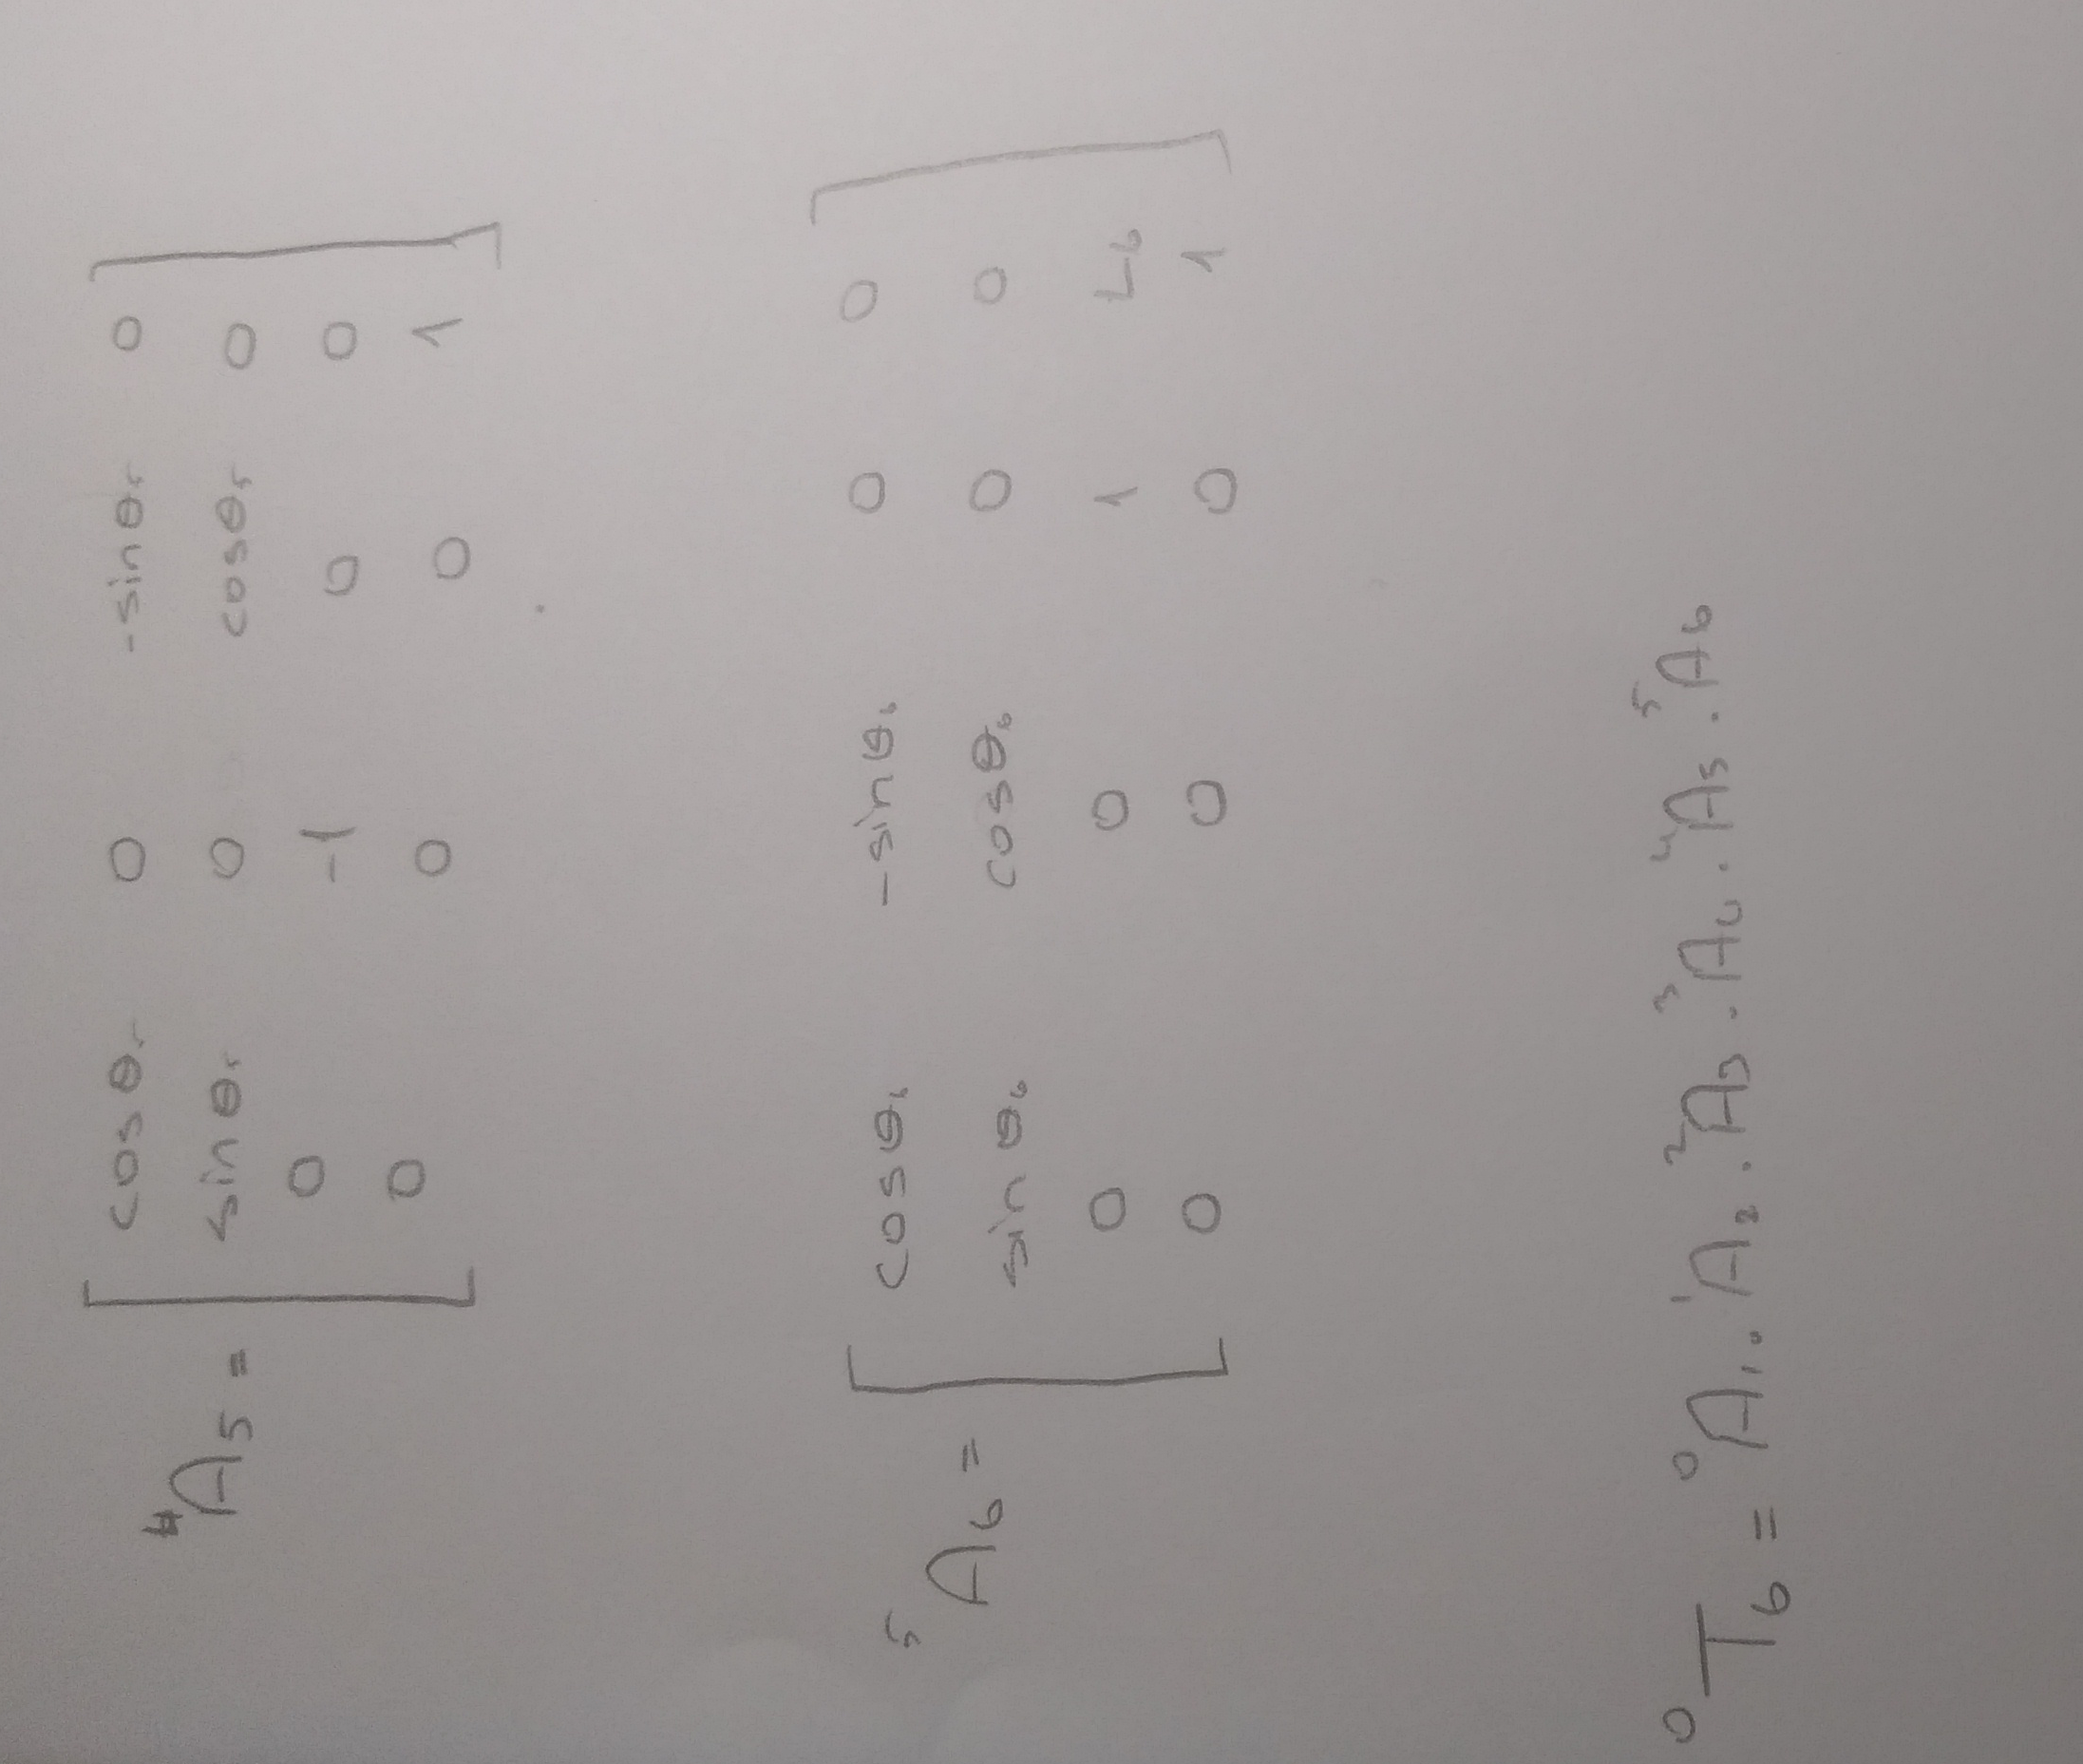 cosθ₅ 0 -sinθ₅ 0
⁴A₅ = sinθ₅ 0 cosθ₅ 0
0 -1 0 0
0 0 0 1
cosθ₆ -sinθ₆ 0 0
⁵A₆ = sinθ₆ cosθ₆ 0 0
0 0 1 L₆
0 0 0 1
⁰T₆ = ⁰A₁.¹A₂.²A₃.³A₄.⁴A₅.⁵A₆